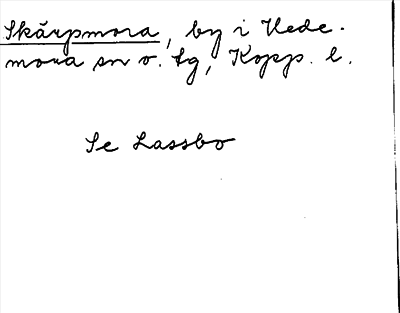 Skärpmora, by i Hede-
mora sn o. tg, Kopp. l.
Se Lassbo